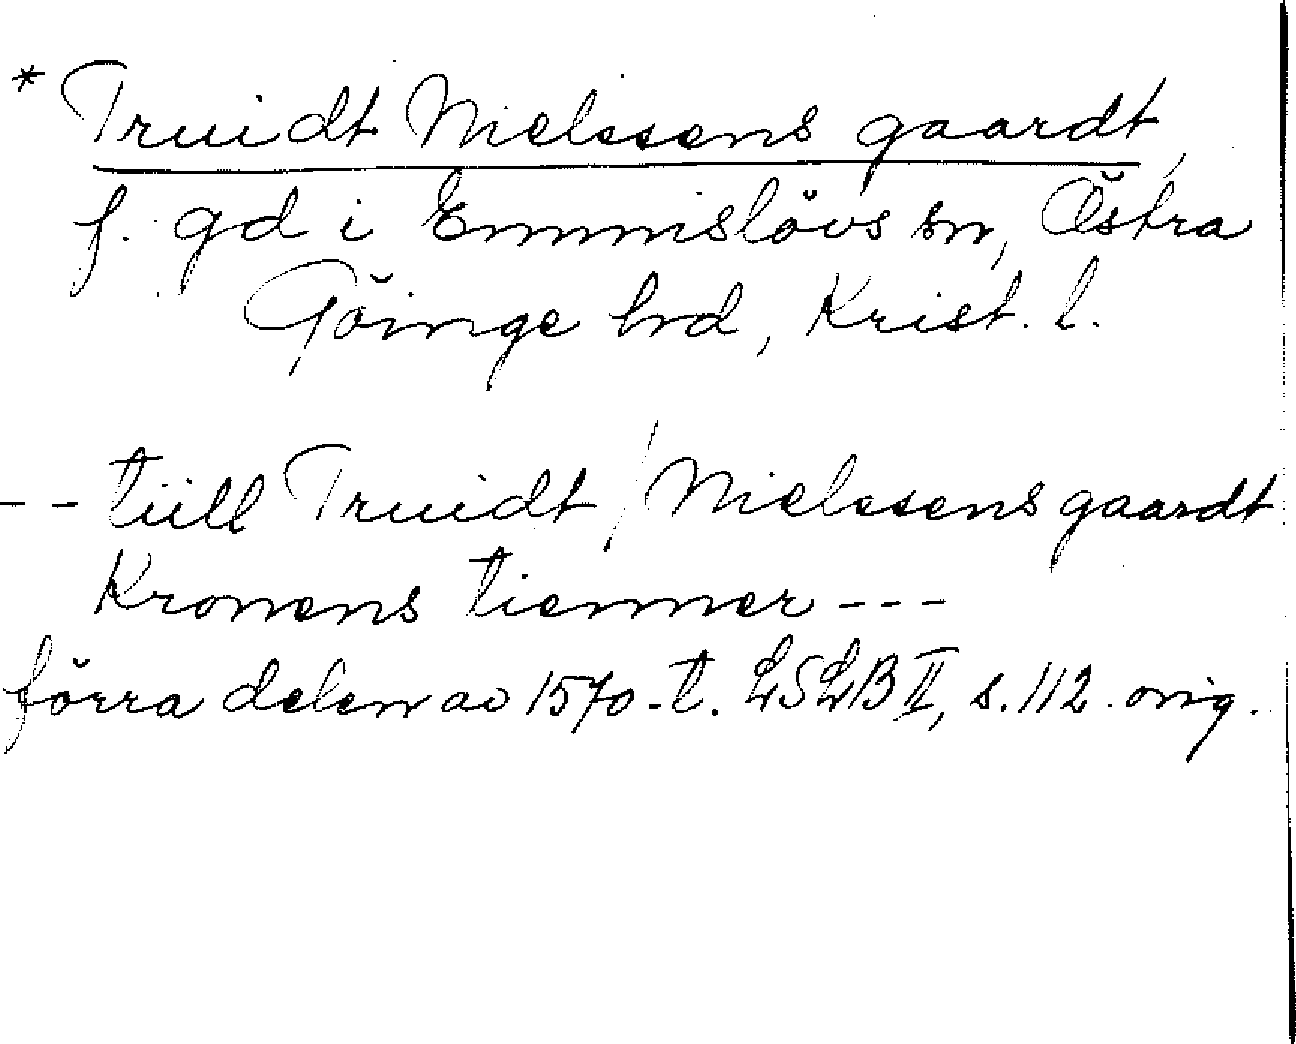 * Truidt Nielssens gaardt,
f. gd i Emmislövs sn, Östra
Göinge hrd, Krist. l.
-- tiill Truidt / Nielssens gaardt
Kronens tienner ---
förra delen av 1570-t. LSLB II, s. 112. orig.